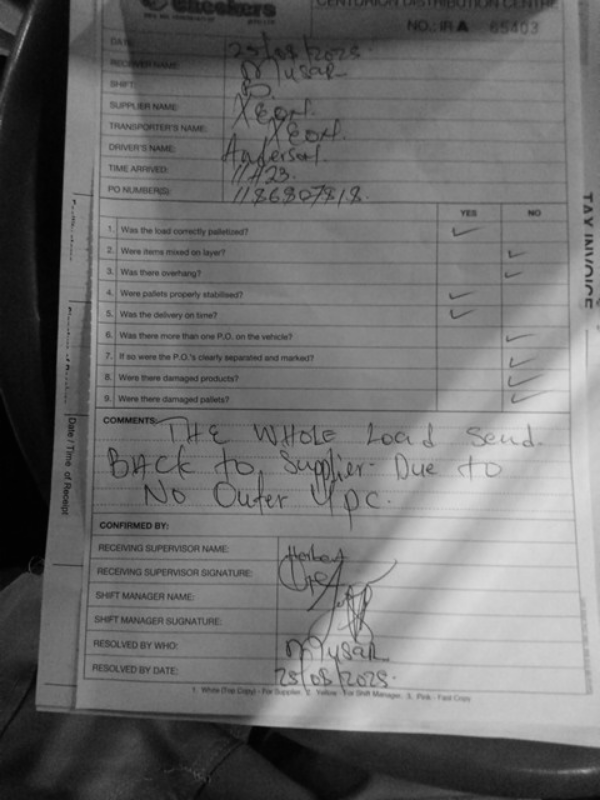 Checkers
CENTURION DISTRIBUTION CENTRE
NO.: IR A 65403
DATE: 25/08/2025.
RECEIVER NAME: Mysar
SHIFT: B.
SUPPLIER NAME: XEON.
TRANSPORTER'S NAME: XEON.
DRIVER'S NAME: Anderson.
TIME ARRIVED: 11H23.
PO NUMBER(S): 1186807818.
YES NO
1. Was the load correctly palletized?
2. Were items mixed on layer?
3. Was there overhang?
4. Were pallets properly stabilised?
5. Was the delivery on time?
6. Was there more than one P.O. on the vehicle?
7. If so were the P.O.'s clearly separated and marked?
8. Were there damaged products?
9. Were there damaged pallets?
COMMENTS:
THE WHOLE Load Send.
BACK to Supplier- Due to
No Outer Upc.
CONFIRMED BY:
RECEIVING SUPERVISOR NAME: Herbert
RECEIVING SUPERVISOR SIGNATURE:
SHIFT MANAGER NAME:
SHIFT MANAGER SUGNATURE:
RESOLVED BY WHO: Mysar
RESOLVED BY DATE: 25/08/2025.
1. White (Top Copy) - For Supplier. 2. Yellow - For Shift Manager. 3. Pink - Fast Copy
TAX INVOICE
Date / Time of Receipt